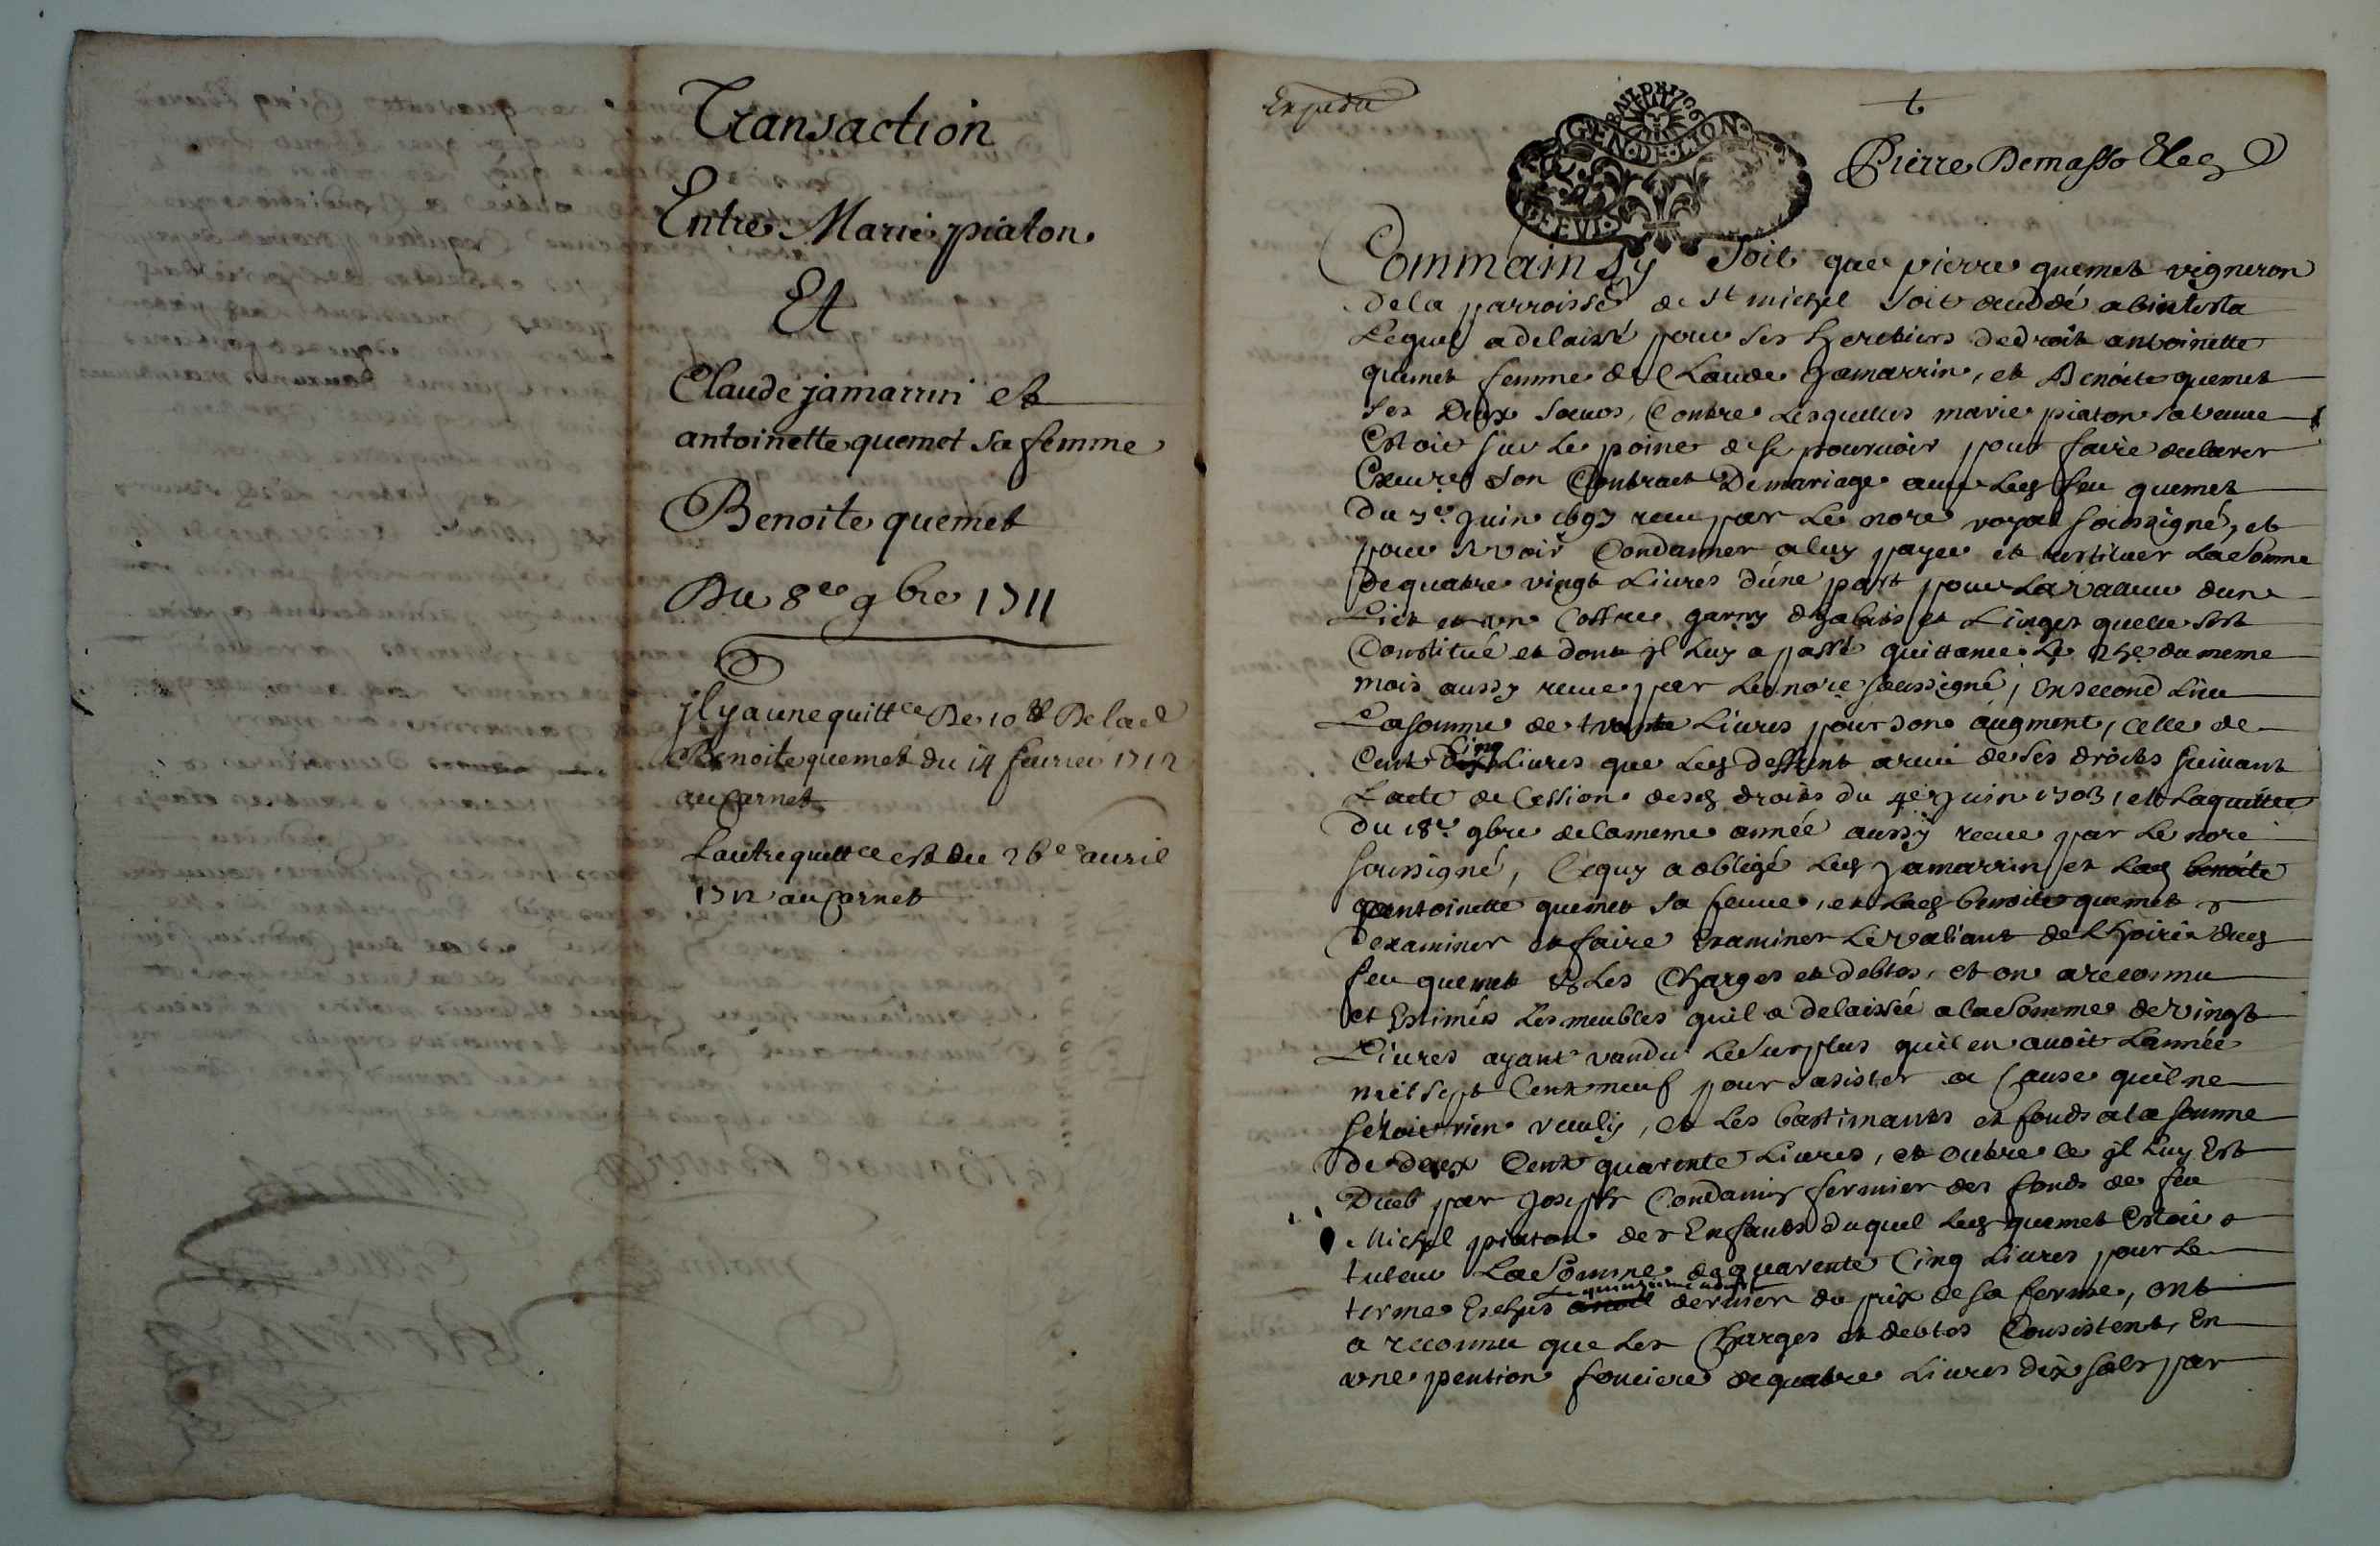 Transaction
Entre Marie piaton
Et
Claude jamarrin et
antoinette quemet sa femme
Benoite quemet
Du 8ee 9bre 1711
jl y a une quittce De 10 ℔ De lad
Benoite quemet du 14 feurier 1712
au Carnet
Lautre quittce est du 26e auril
1712 au Carnet
Expedié
GEN·DE·LION
Pierre Demasso
Commainsy soit que pierre quemet vigneron
de la parroisse de St michel soit deceddé abintesta
Lequel a delaissé pour ses heretiers de droit antoinette
quemet femme de Claude Jamarrin, et Benoite quemet
ses Deux soeurs, Contre Lesquelles marie piaton sa veuue
Estoit sur le poinct de se pouruoir pour faire declarer
son Contract De mariage auec Led feu quemet
du 7e Juin 1697 receu par Le nore royal soussigné, et
pour se voir Condamner a luy payer et restituer La Somme
de quatre vingt Liures d'une part pour La valleur dun
Lict et un Coffre garny dhabits et Linges quelle sest
Constitué et dont jl luy a passé quittance Le 25e du meme
mois aussy receue par Le nore soussigné, En second Lieu
La somme de trente Liures pour son augment, celle de
Cent Cinq Liures que Led deffunt a receu de ses droits suiuant
Lacte de Cession desd droits du 4e Juin 1703, et La quittce
du 18e 9bre de la meme année aussy receue par Le nore
soussigné, Cequy a obligé Led Jamarrin et Lad benoite
antoinette quemet sa femme, et Lad benoite quemet
dexaminer et faire Examiner Le valiant de Lhoirie dud
feu quemet & Les Charges et debtes, et on a reconnu
et Estimés Les meubles quil a delaissé a la Somme de vingt
Liures ayant vandu Le Surplus quil en auoit Lannée
mil sept Cent neuf pour sasister a Cause quil ne
sestoit rien veully, et Les bastimants et fonds a la somme
de deux Cent quarente Liures, et outre ce jl Luy Est
Dueb par Joseph Condamin fermier des fonds de feu
Michel piaton des Enfants duquel Led quemet Estoit
tuteur La Somme de quarente Cinq Liures pour Le
terme Eschus Le dernier du prix de sa ferme, ont
a reconnu que Les Charges et debtes Consistent, En
une pention fonciere de quatre Liures dix sols par